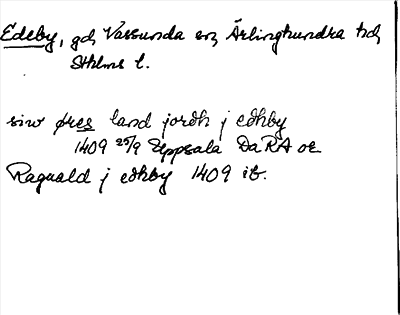 Edeby, gd, Vassunda sn, Ärlinghundra hd,
Sthlms l.
siw øres land jordh j edhby
1409 25/9 Uppsala DaRA or
Raguald j edhby 1409 ib.